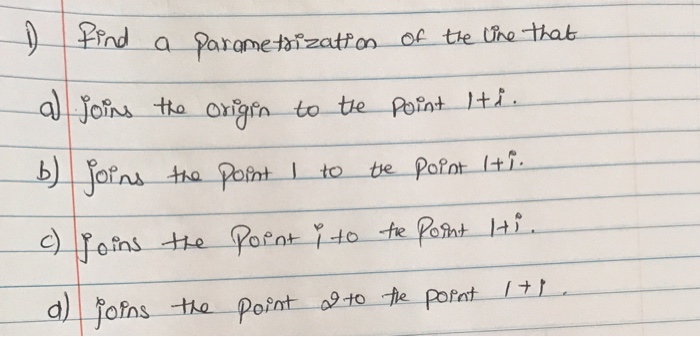 1) Find a parametrization of the line that
a) joins the origin to the point 1+i.
b) joins the point 1 to the point 1+i.
c) joins the point i to the point 1+i.
d) joins the point 2 to the point 1+i.